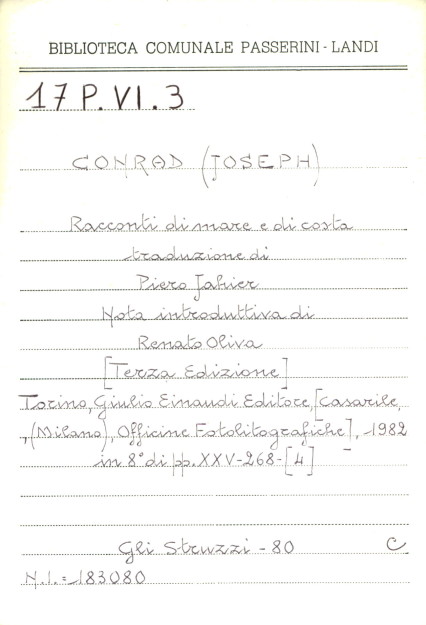 BIBLIOTECA COMUNALE PASSERINI - LANDI
17 P. VI. 3
CONRAD (JOSEPH)
Racconti di mare e di costa
traduzione di
Piero Jahier
Nota introduttiva di
Renato Oliva
[Terza Edizione]
Torino, Giulio Einaudi Editore, [Casarile,
, (Milano), Officine Fotolitografiche], -1982
in 8° di pp. XXV-268-[4]
Gli Struzzi - 80 C
N.I. = 183080